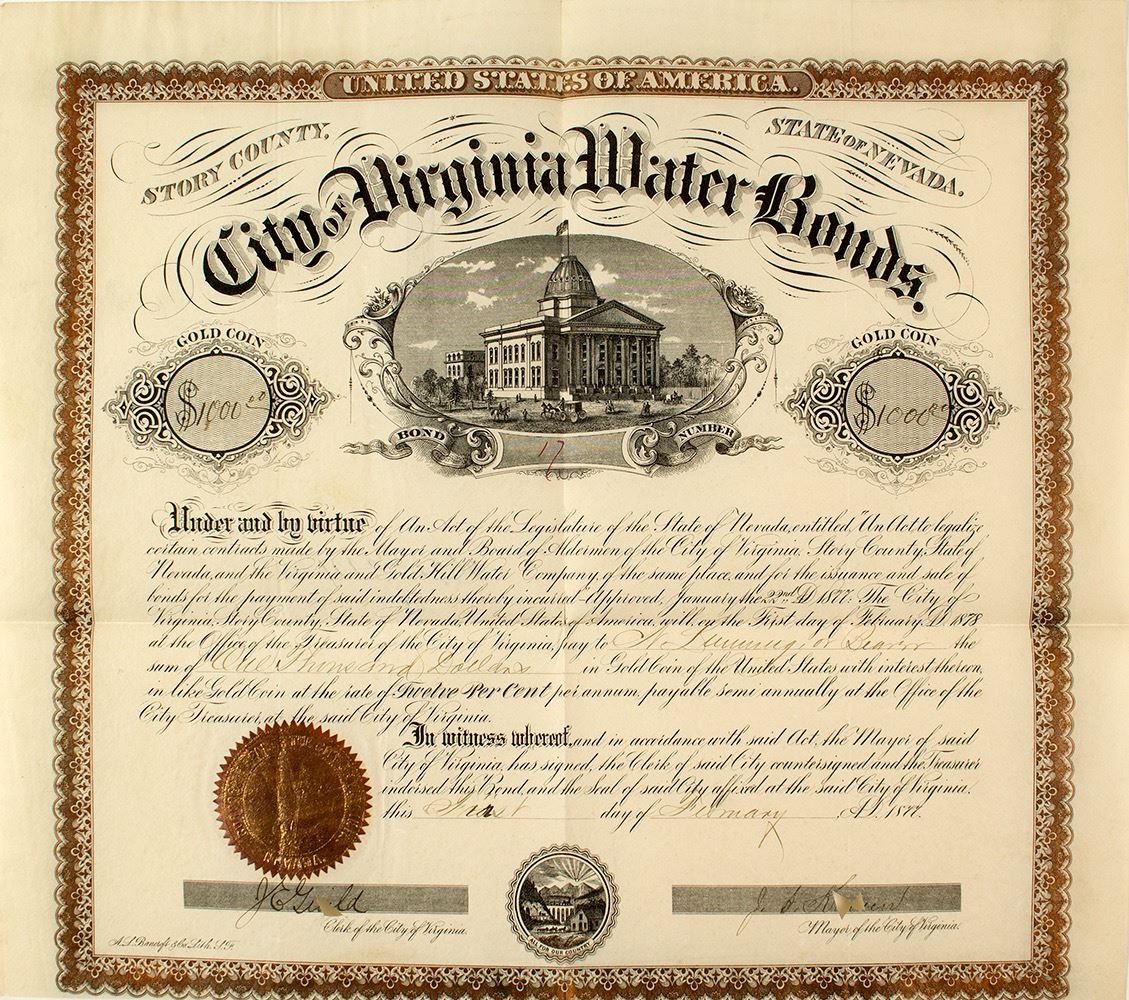 UNITED STATES OF AMERICA.
STORY COUNTY.
STATE OF NEVADA.
City of Virginia Water Bonds.
GOLD COIN
GOLD COIN
$1000 00
$1000 00
BOND
NUMBER
17
Under and by virtue of An Act of the Legislature of the State of Nevada, entitled, "An Act to legalize
certain contracts made by the Mayor and Board of Aldermen of the City of Virginia, Story County, State of
Nevada, and the Virginia and Gold Hill Water Company, of the same place, and for the issuance and sale of
bonds for the payment of said indebtedness thereby incurred" Approved, January the 22nd A.D. 1877. The City of
Virginia, Story County, State of Nevada, United States of America, will, on the First day of February A.D. 1878
at the Office of the Treasurer of the City of Virginia, pay to N. Luning or Bearer the
sum of One Thousand Dollars in Gold Coin of the United States with interest thereon,
in like Gold Coin at the rate of Twelve Per Cent per annum, payable semi annually at the Office of the
City Treasurer, at the said City of Virginia.
In witness whereof, and in accordance with said Act, the Mayor of said
City of Virginia, has signed, the Clerk of said City countersigned and the Treasurer
indorsed this Bond, and the Seal of said City affixed at the said City of Virginia,
this First day of February A.D. 1877.
NEVADA
J E Guild
Clerk of the City of Virginia.
ALL FOR OUR COUNTRY
Mayor of the City of Virginia.
A. L. Bancroft & Co. Lith. S. F.